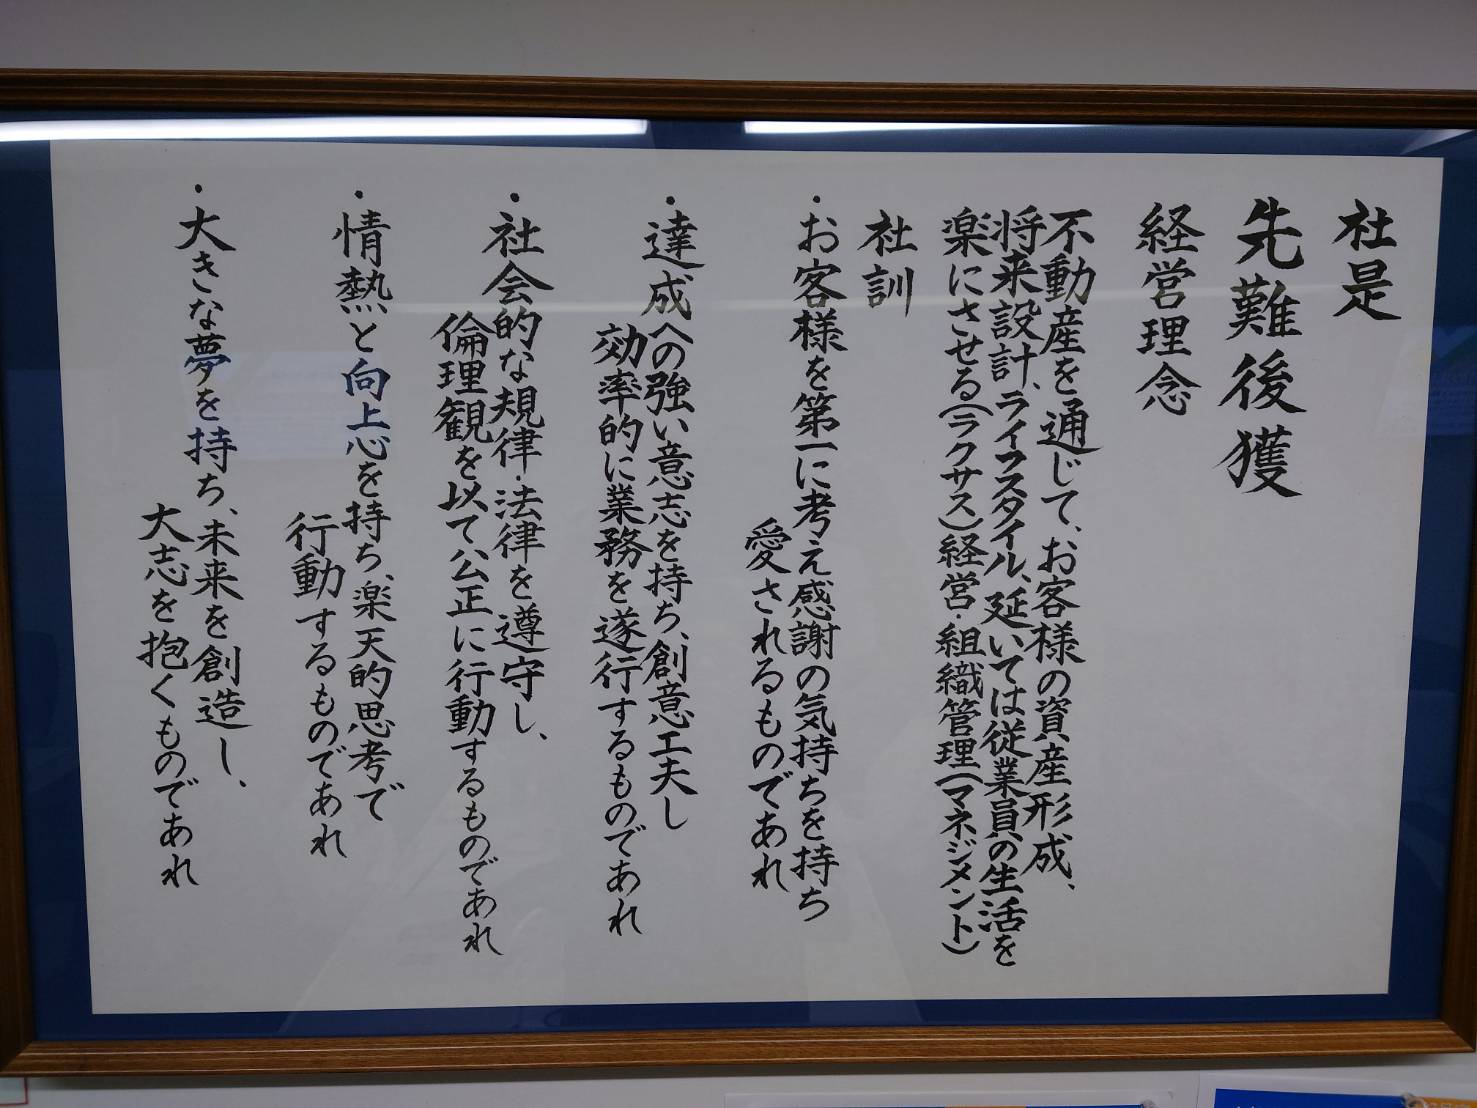 社是
先難後獲
経営理念
不動産を通じて、お客様の資産形成、
将来設計、ライフスタイル、延いては従業員の生活を
楽にさせる(ラクサス)経営・組織管理(マネジメント)
社訓
・お客様を第一に考え感謝の気持ちを持ち
愛されるものであれ
・達成への強い意志を持ち、創意工夫し
効率的に業務を遂行するものであれ
・社会的な規律・法律を遵守し、
倫理観を以て公正に行動するものであれ
・情熱と向上心を持ち、楽天的思考で
行動するものであれ
・大きな夢を持ち、未来を創造し、
大志を抱くものであれ